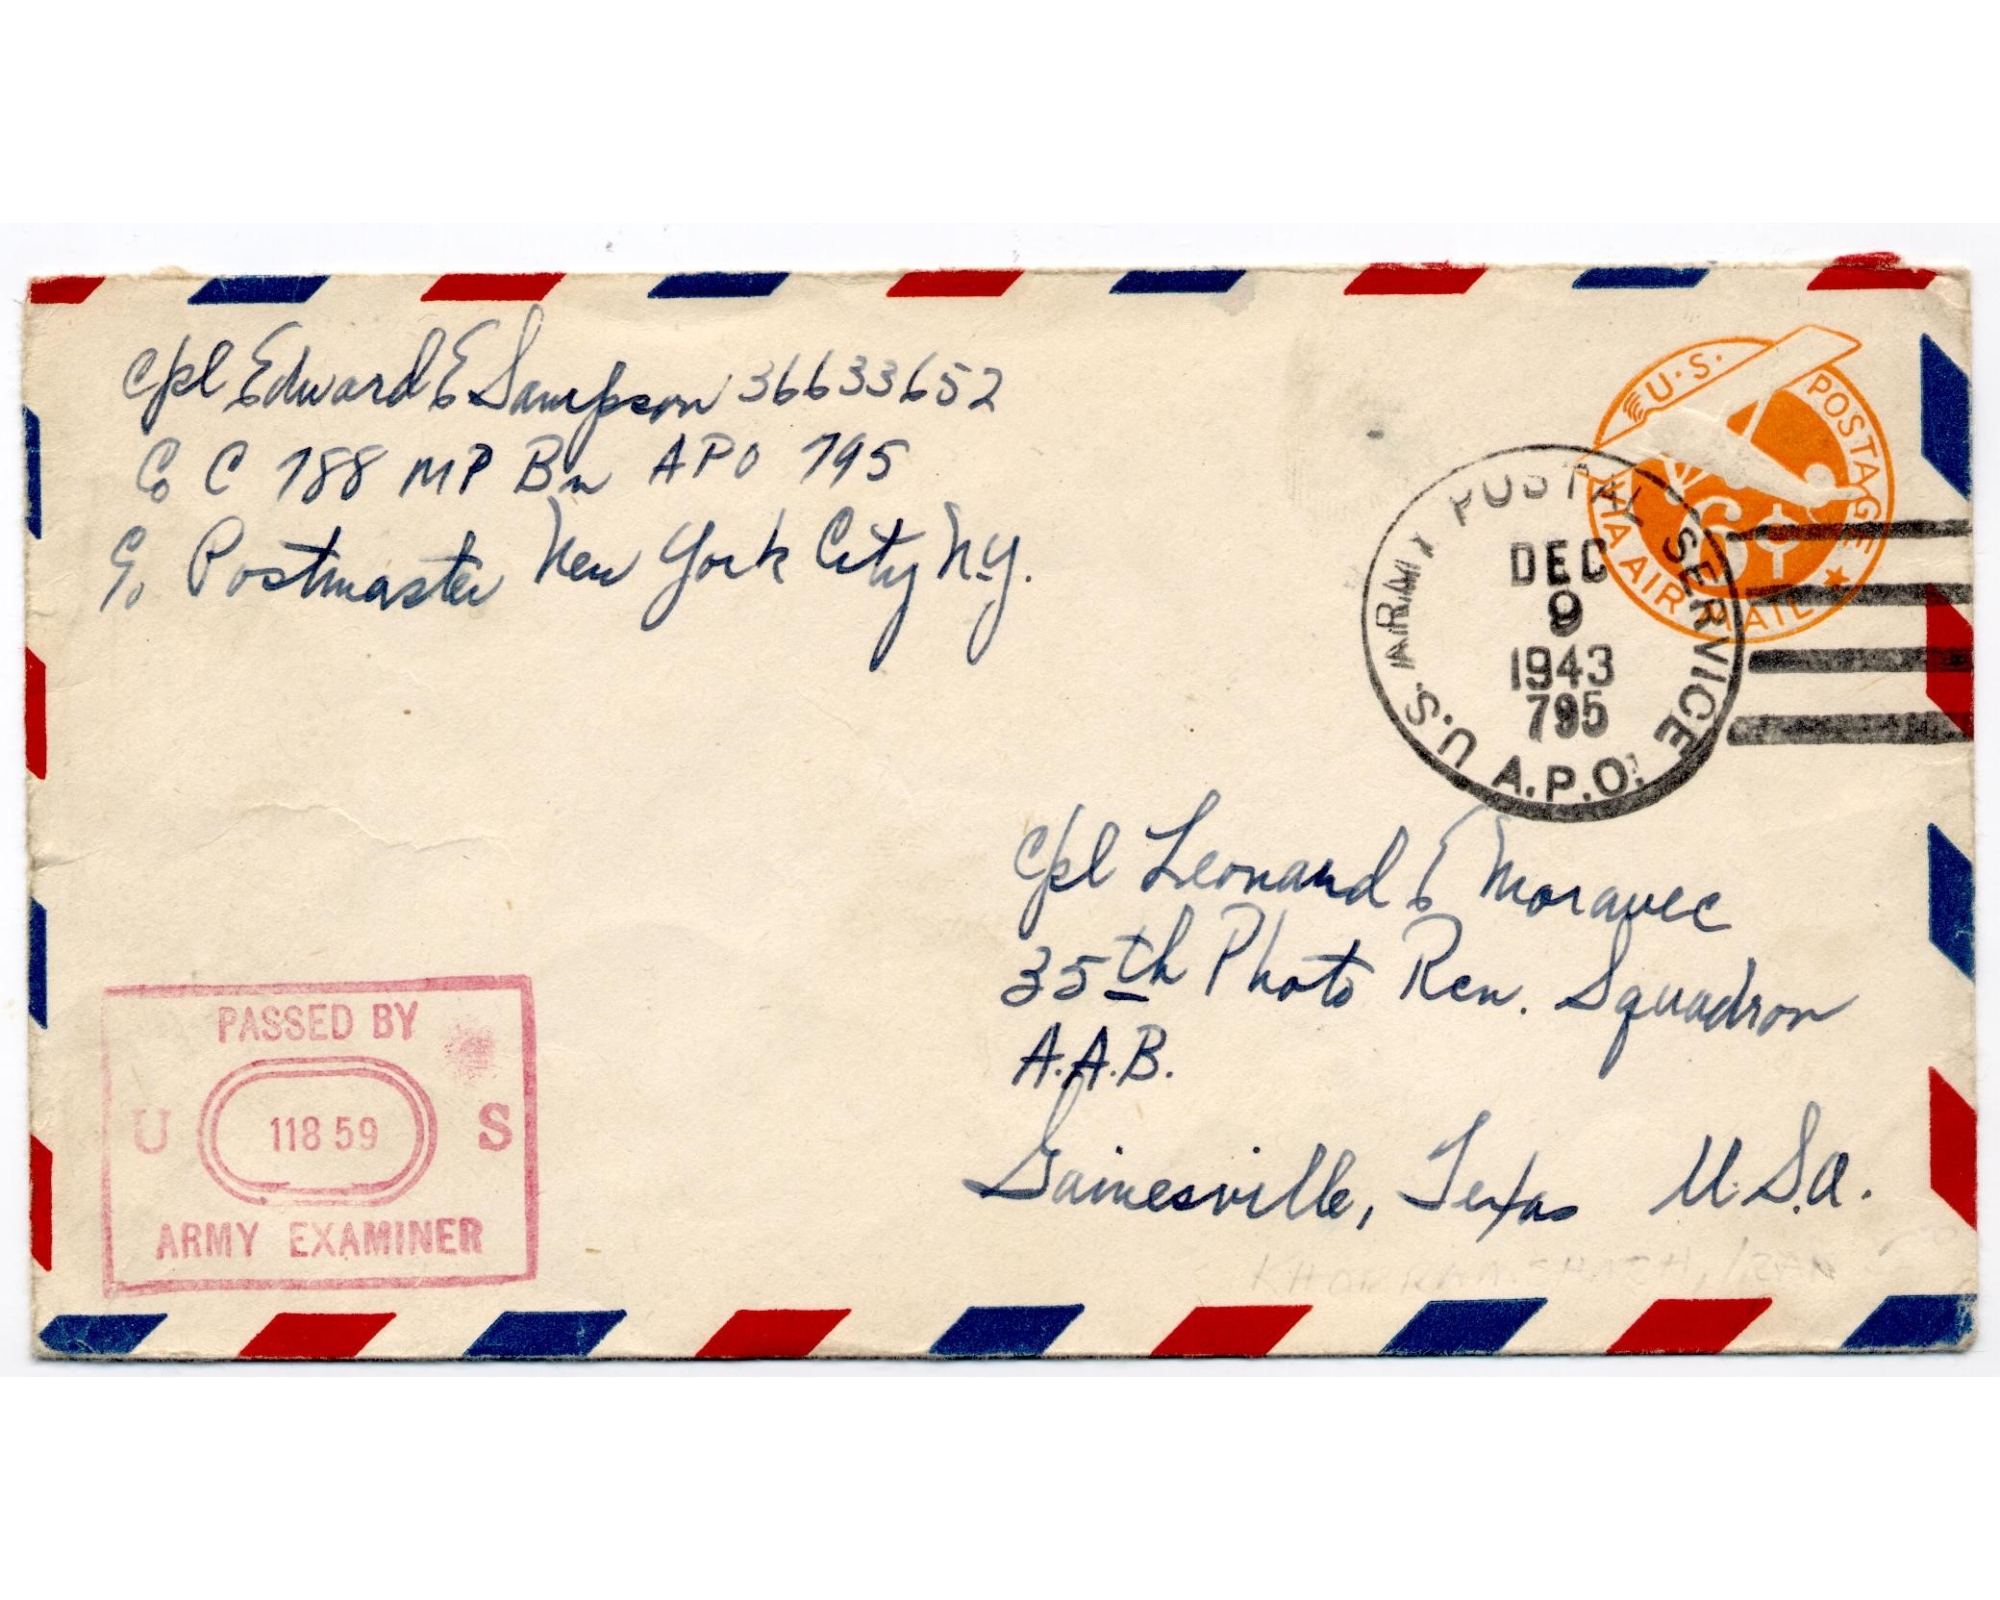 Cpl Edward E Sampson 36633652
Co C 788 MP Bn APO 795
c/o Postmaster New York City N.Y.
U.S. POSTAGE
6¢
VIA AIR MAIL
U.S. ARMY POSTAL SERVICE
DEC
9
1943
795
A.P.O.
Cpl Leonard E Moravec
35th Photo Rcn. Squadron
A.A.B.
Gainesville, Texas U.S.A.
KHORRAMSHAHR, IRAN
PASSED BY
U 11859 S
ARMY EXAMINER